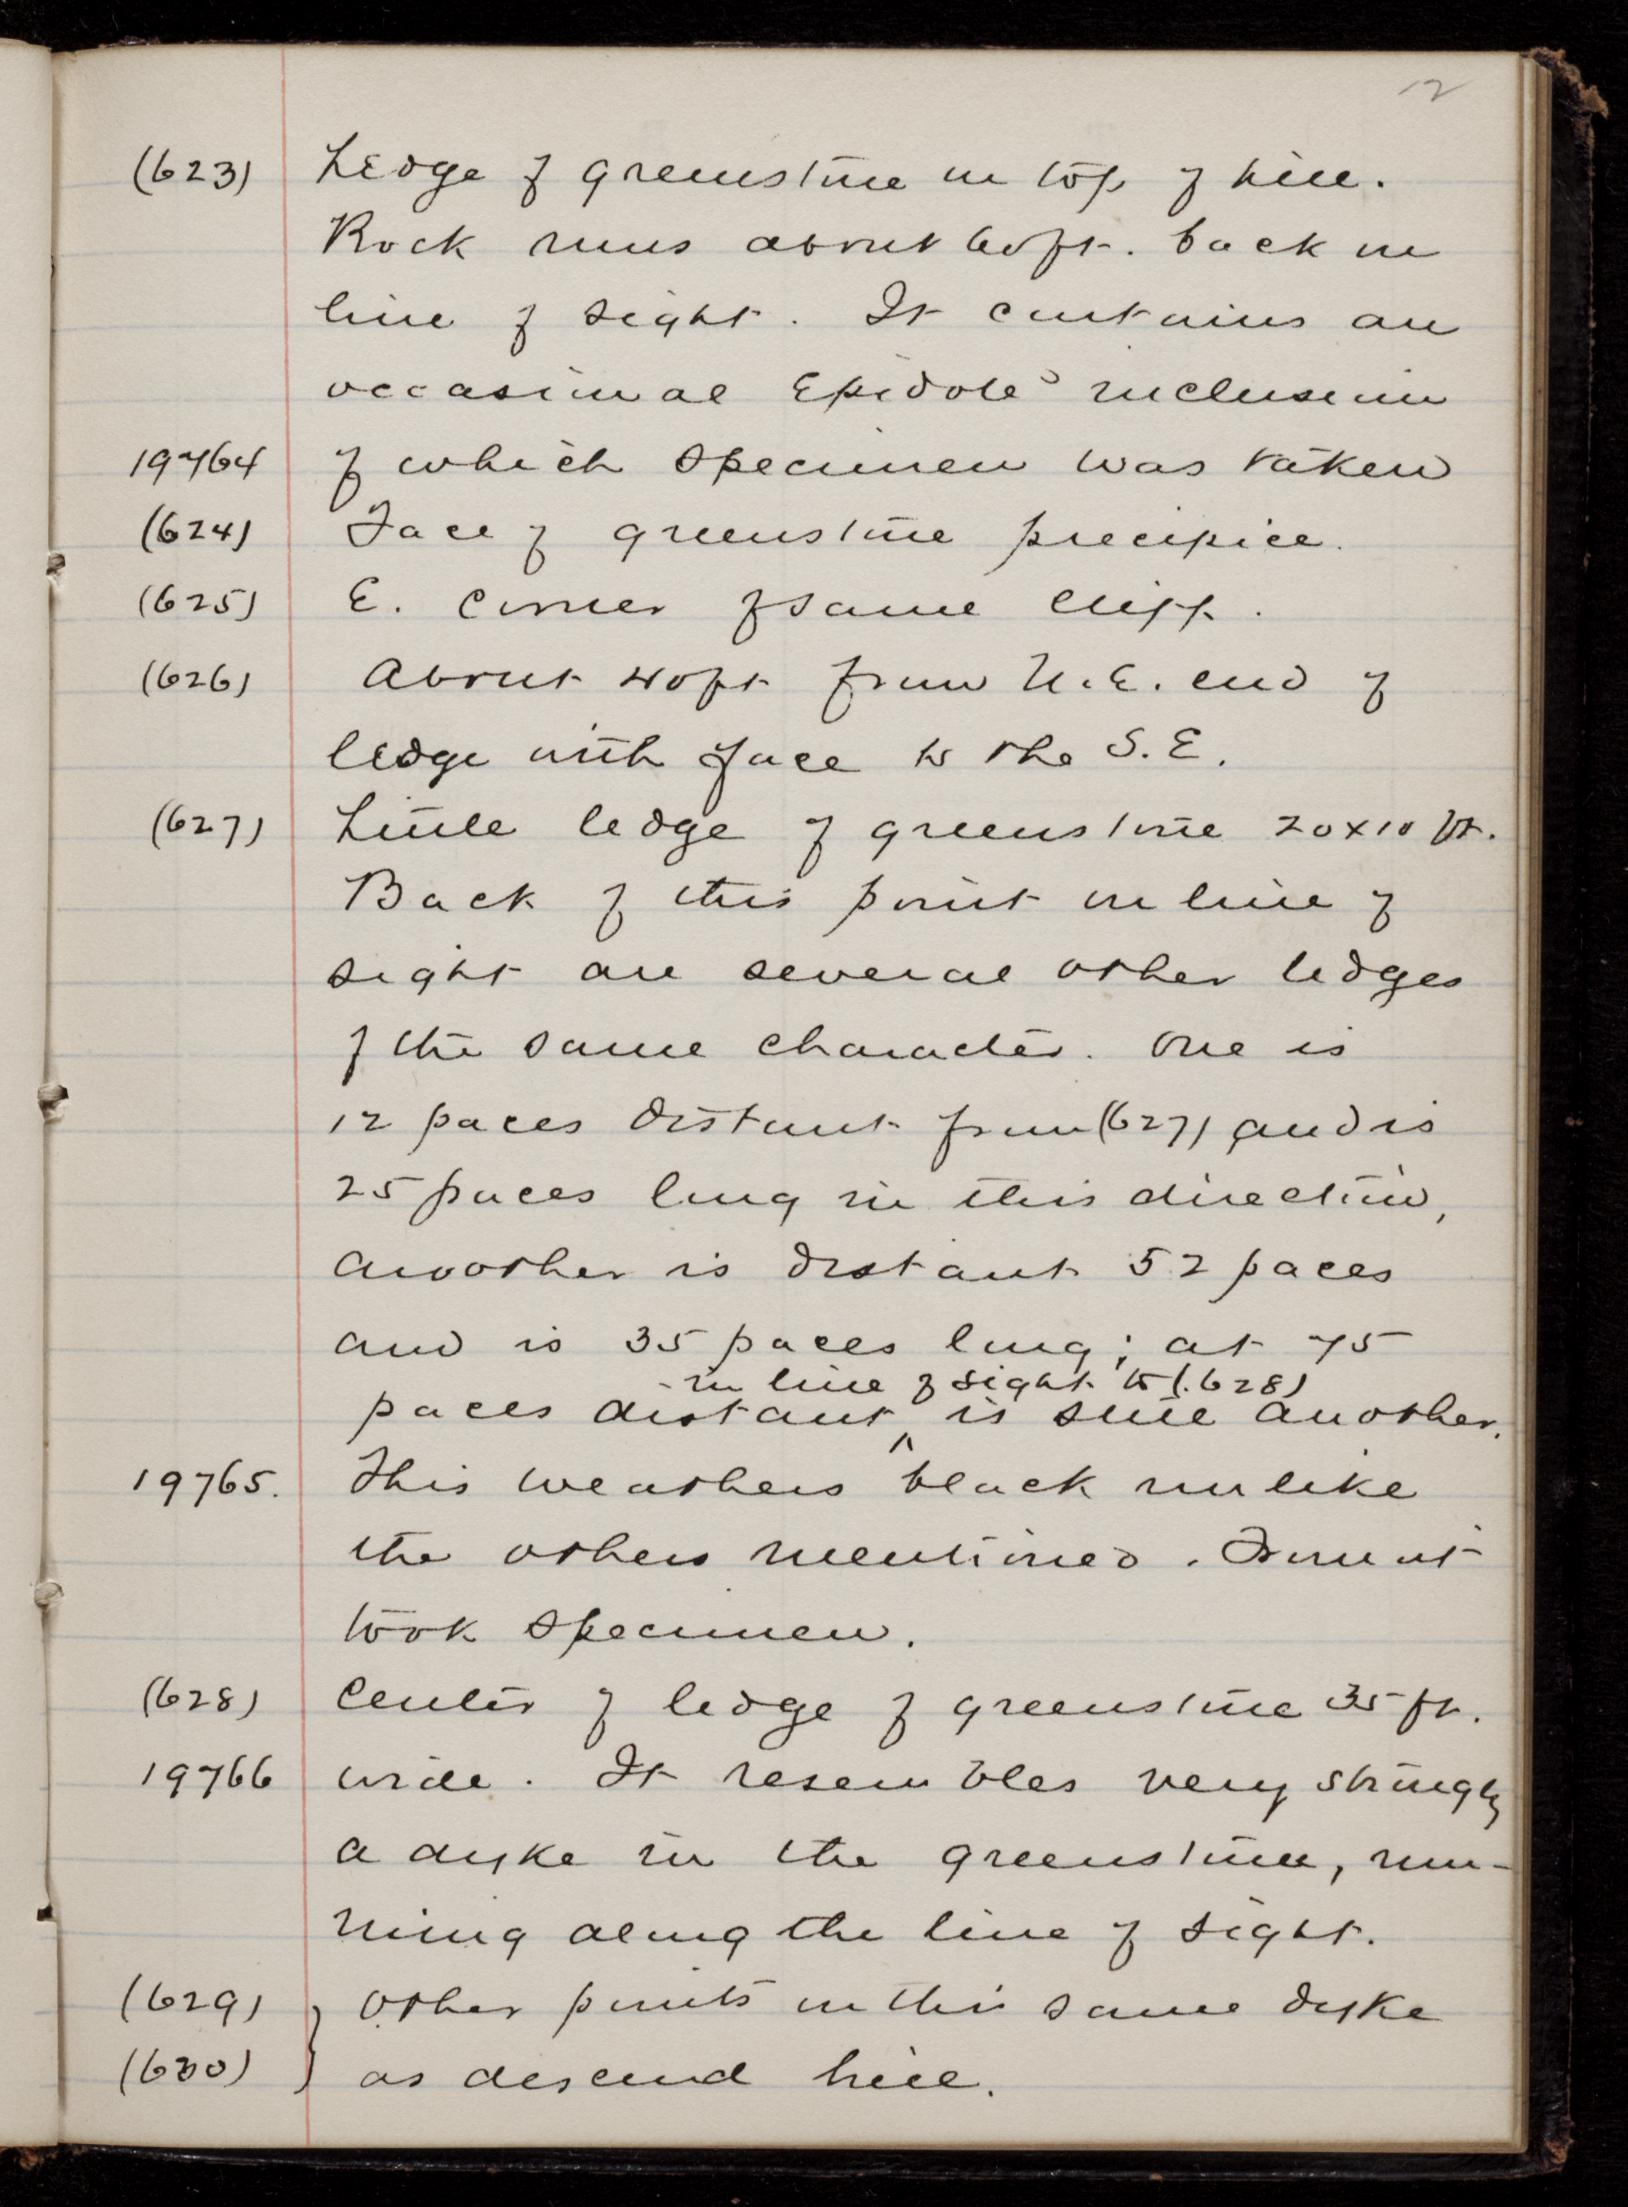 12
(623) Ledge of greenstone on top of hill.
Rock runs about 60 ft. back in
line of sight. It contains an
occasional Epidote inclusion
19764 of which specimen was taken
(624) Face of greenstone precipice.
(625) E. corner of same cliff.
(626) About 40 ft from N.E. end of
ledge with face to the S.E.
(627) Little ledge of greenstone 20x10 ft.
Back of this point in line of
sight are several other ledges
of the same character. One is
12 paces distant from (627) and is
25 paces long in this direction,
another is distant 52 paces
and is 35 paces long; at 75
in line of sight to (628)
paces distant ^ is still another.
19765. This weathers black unlike
the others mentioned. From it
took specimen.
(628) Center of ledge of greenstone 35 ft.
19766 wide. It resembles very strongly
a dyke in the greenstone, run-
ning along the line of sight.
(629) } Other points in this same dyke
(630) } as descend hill.